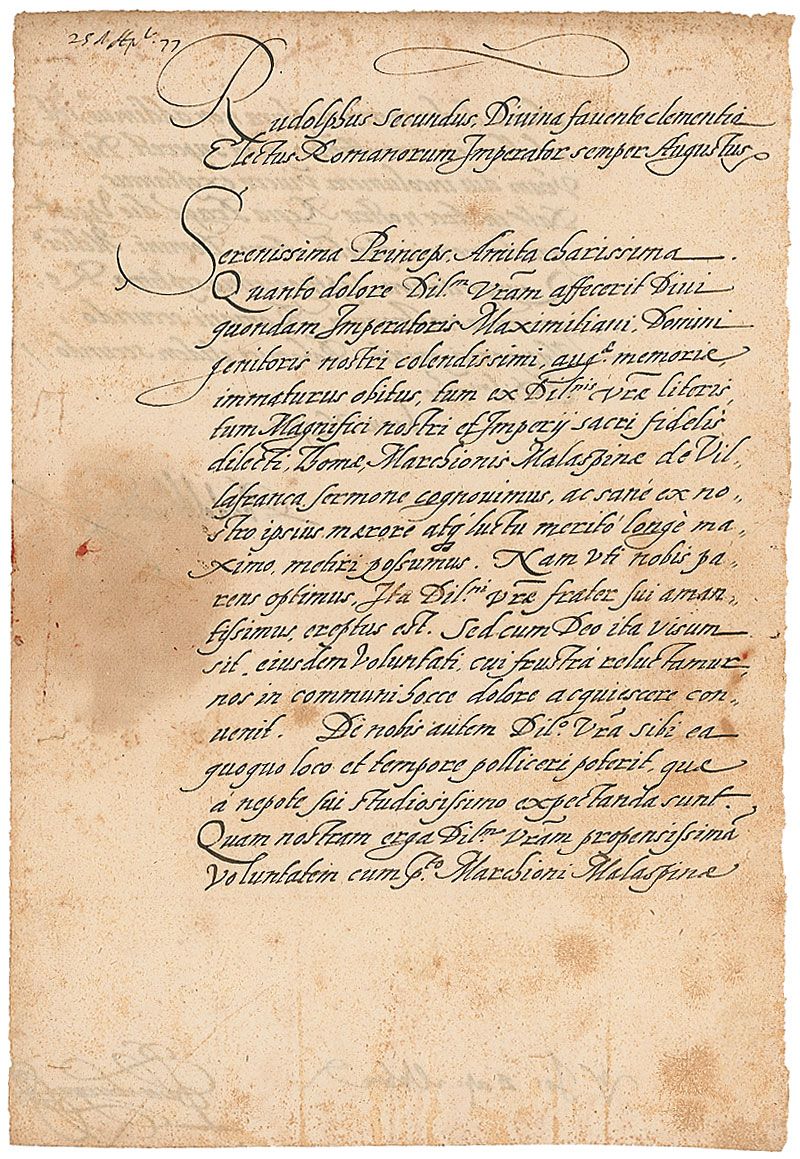 25 Apl. 77
Rudolphus Secundus, Divina favente clementia
Electus Romanorum Imperator semper Augustus
Serenissima Princeps, Amita charissima.
Quanto dolore Dil.m Vram affecerit Divi
quondam Imperatoris Maximiliani, Domini
genitoris nostri colendissimi, aug.e memoriæ,
immaturus obitus, tum ex Dil.nis vræ literis,
tum Magnifici nostri et Imperij sacri fidelis
dilecti, Thomæ, Marchionis Malaspinæ de Vil„
lafranca sermone cognovimus, ac sanè ex no„
stro ipsius mærore atq luctu meritò longè ma„
ximo, metiri possumus. Nam vti nobis pa„
rens optimus, Ita Dil.ni vræ frater sui aman„
tissimus, ereptus est. Sed cum Deo ita visum
sit, eiusdem voluntati, cui frustrà reluctamur,
nos in communi hocce dolore acquiescere con„
uenit. De nobis autem Dil.o Vra sibi ea
quoquo loco et tempore polliceri poterit, quæ
à nepote sui studiosissimo expectanda sunt.
Quam nostram erga Dil.nem Vram propensissimã
voluntatem cum p.to Marchioni Malaspinæ